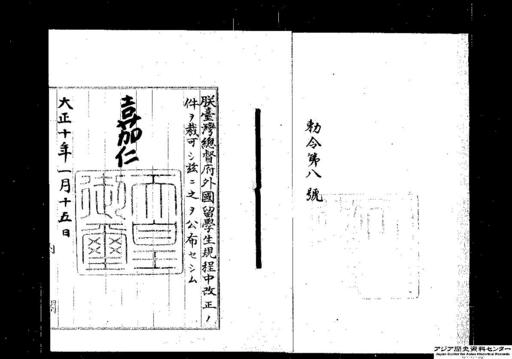 勅令第八號
朕臺灣總督府外國留學生規程中改正ノ
件ヲ裁可シ茲ニ之ヲ公布セシム
嘉仁
天皇
御璽
大正十年一月十五日
アジア歴史資料センター
Japan Center for Asian Historical Records